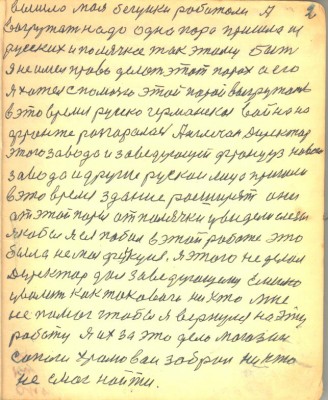 вышло мая бегушки работали Я 2
выгружат надо одно пора пришло и
русских и полячка так этому быт
Я не имел право делат этот парох а его
Я хотел с помощю этой парой выгружат
в это время русско германская война на
фронте разгаралас Англичан Директор
этого завода и заведующей француз нового
завода и другие руской лицо пришли
в это время здание они
от этой пары от полячки увидели слезы
Якобы я ея побил в этой работе это
была не моя Я этого не делал
Директор дал заведующему
уволит как таковаго никто мне
не помог чтобы я вернулся на эту
работу Я их за это дело магазин
сапоги хромовыи забрал никто
не смог найти.